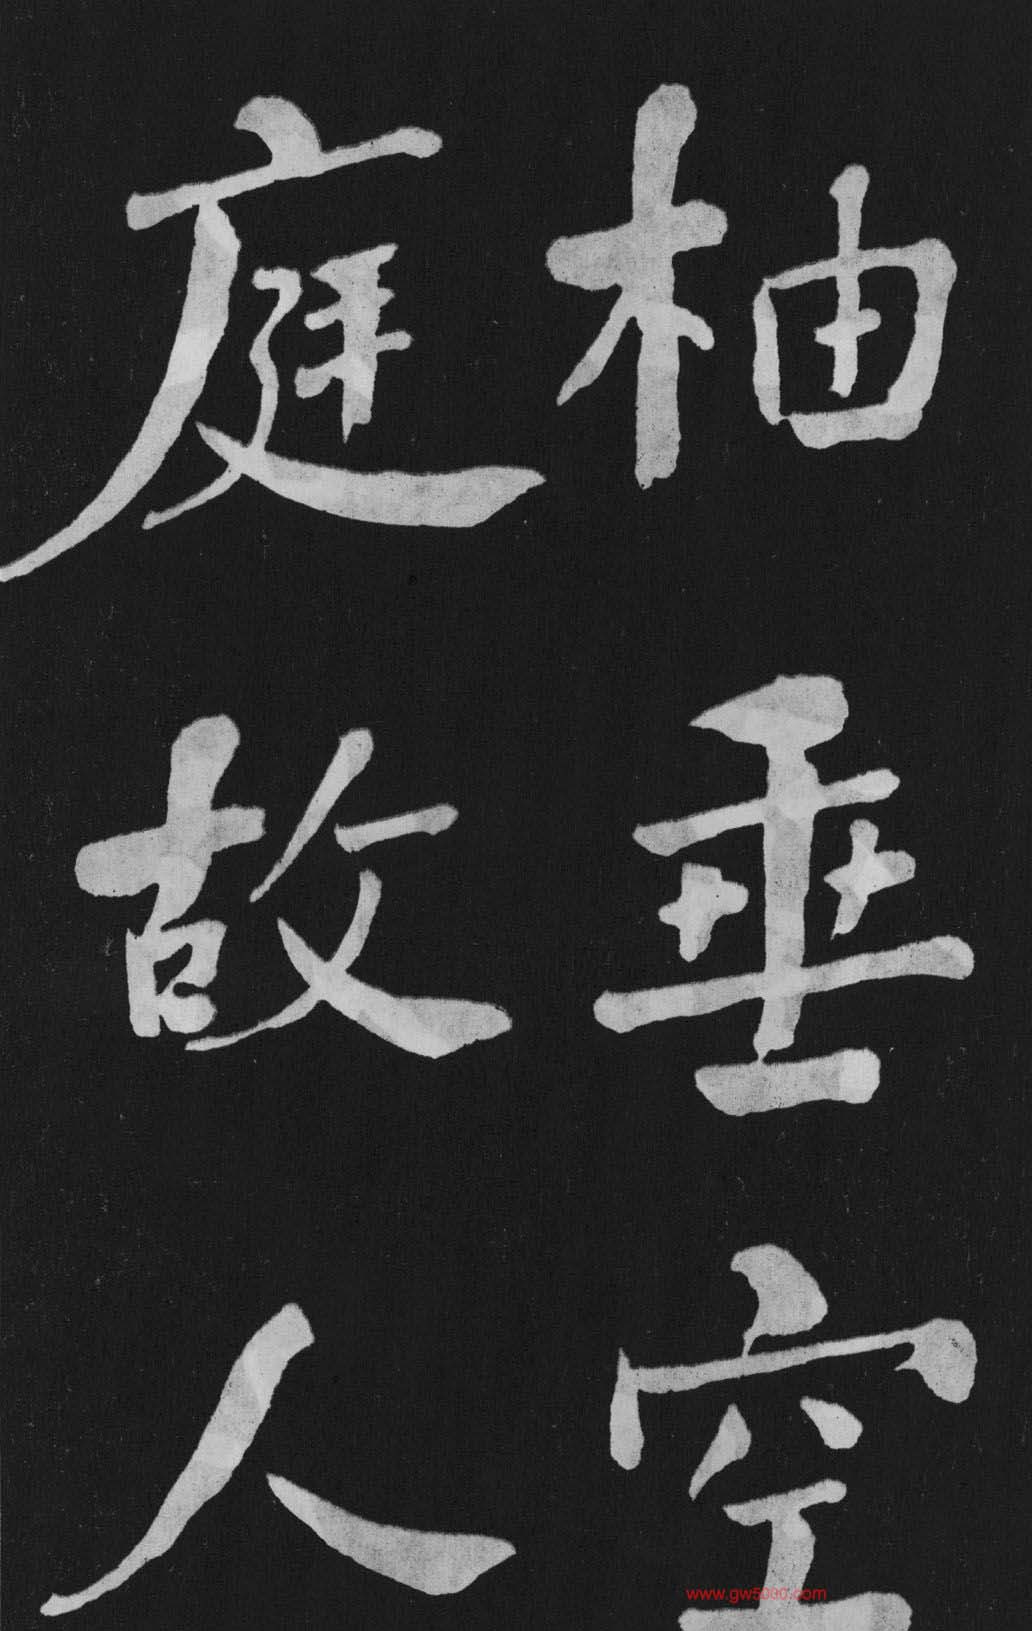 柚垂空
庭故人
www.gw5000.com